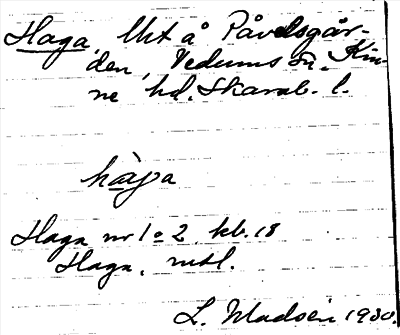 Haga, lht å Påvelsgår-
den, Vedums sn. Kin-
ne hd. Skarab. l.
hàga
Haga nr 1 o 2 kb. 18
Haga, mtl.
L. 1930.